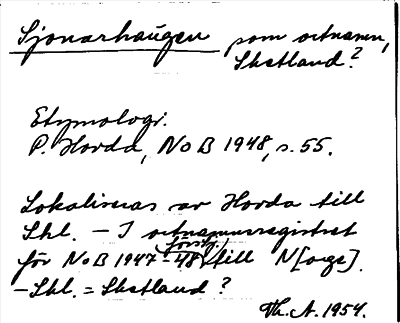 Sjonarhaugen som ortnamn,
Shetland?
Etymologi.
P. Hovda, NoB 1948, s. 55.
Lokaliseras av Hovda till
Shl. – I ortnamnsregistret
för NoB 1947–48 förstg. till N[orge].
– Shl. = Shetland?
Th. A. 1954.